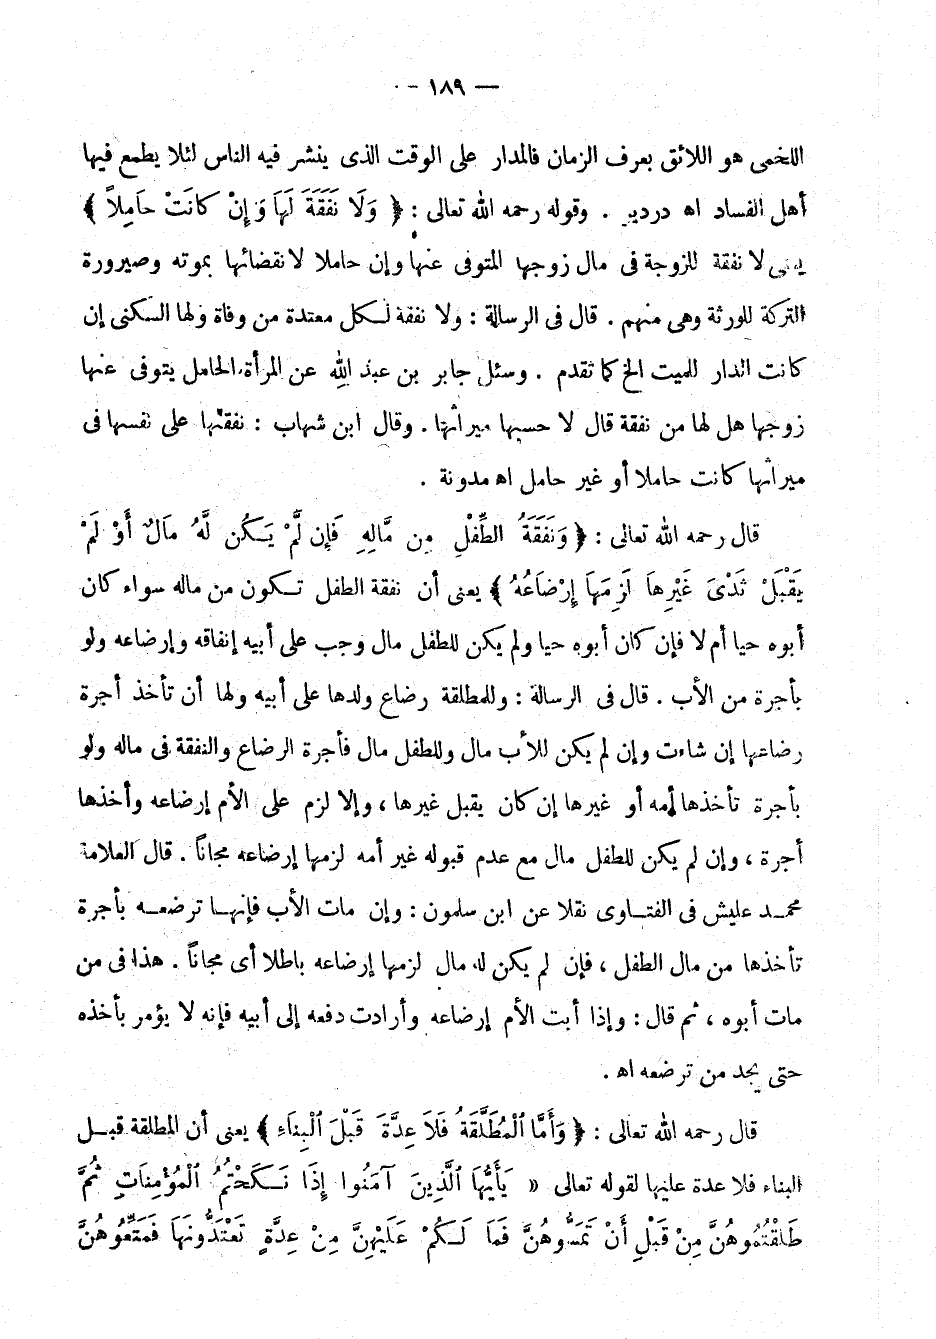 — ١٨٩ —
اللخمى هو اللائق بعرف الزمان فالمدار على الوقت الذى ينشر فيه الناس لئلا يطمع فيها
أهل الفساد اه دردير . وقوله رحمه الله تعالى : ﴿ وَلَا نَفَقَةَ لَهَا وَإِنْ كَانَتْ حَامِلاً ﴾
يعنى لا نفقة للزوجة فى مال زوجها المتوفى عنها وإن حاملا لانقضائها بموته وصيرورة
التركة للورثة وهى منهم . قال فى الرسالة : ولا نفقة لكل معتدة من وفاة ولها السكنى إن
كانت الدار للميت الخ كما تقدم . وسئل جابر بن عبد الله عن المرأة الحامل يتوفى عنها
زوجها هل لها من نفقة قال لا حسبها ميراثها . وقال ابن شهاب : نفقتها على نفسها فى
ميراثها كانت حاملا أو غير حامل اه مدونة .
قال رحمه الله تعالى : ﴿ وَنَفَقَةُ الطِّفْلِ مِن مَّالِهِ فَإِن لَّمْ يَكُن لَّهُ مَالٌ أَوْ لَمْ
يَقْبَلْ ثَدْىَ غَيْرِهَا لَزِمَهَا إِرْضَاعُهُ ﴾ يعنى أن نفقة الطفل تكون من ماله سواء كان
أبوه حيا أم لا فإن كان أبوه حيا ولم يكن للطفل مال وجب على أبيه إنفاقه وإرضاعه ولو
بأجرة من الأب . قال فى الرسالة : وللمطلقة رضاع ولدها على أبيه ولها أن تأخذ أجرة
رضاعها إن شاءت وإن لم يكن للأب مال وللطفل مال فأجرة الرضاع والنفقة فى ماله ولو
بأجرة تأخذها أمه أو غيرها إن كان يقبل غيرها ، وإلا لزم على الأم إرضاعه وأخذها
أجرة ، وإن لم يكن للطفل مال مع عدم قبوله غير أمه لزمها إرضاعه مجاناً . قال العلامة
محمد عليش فى الفتاوى نقلا عن ابن سلمون : وإن مات الأب فإنها ترضعه بأجرة
تأخذها من مال الطفل ، فإن لم يكن له مال لزمها إرضاعه باطلا أى مجاناً . هذا فى من
مات أبوه ، ثم قال : وإذا أبت الأم إرضاعه وأرادت دفعه إلى أبيه فإنه لا يؤمر بأخذه
حتى يجد من ترضعه اه .
قال رحمه الله تعالى : ﴿ وَأَمَّا ٱلْمُطَلَّقَةُ فَلَا عِدَّةَ قَبْلَ ٱلْبِنَاءِ ﴾ يعنى أن المطلقة قبل
البناء فلا عدة عليها لقوله تعالى « يَأَيُّهَا ٱلَّذِينَ آمَنُوا إِذَا نَكَحْتُمُ ٱلْمُؤْمِنَاتِ ثُمَّ
طَلَقْتُمُوهُنَّ مِنْ قَبْلِ أَنْ تَمَسُّوهُنَّ فَمَا لَكُمْ عَلَيْهِنَّ مِنْ عِدَّةٍ تَعْتَدُّونَهَا فَمَتِّعُوهُنَّ